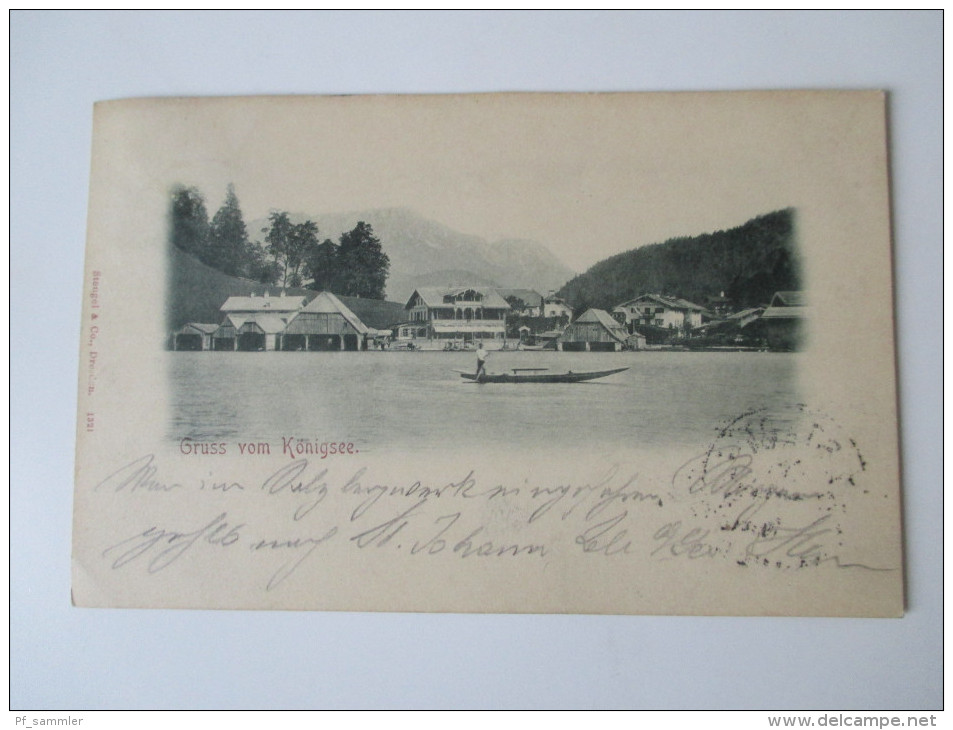 Stengel & Co., Dresden. 1321
Gruss vom Königsee.
War im Salzbergwerk eingefahren
gehts nach St. Johann
Pf_sammler
www.delcampe.net